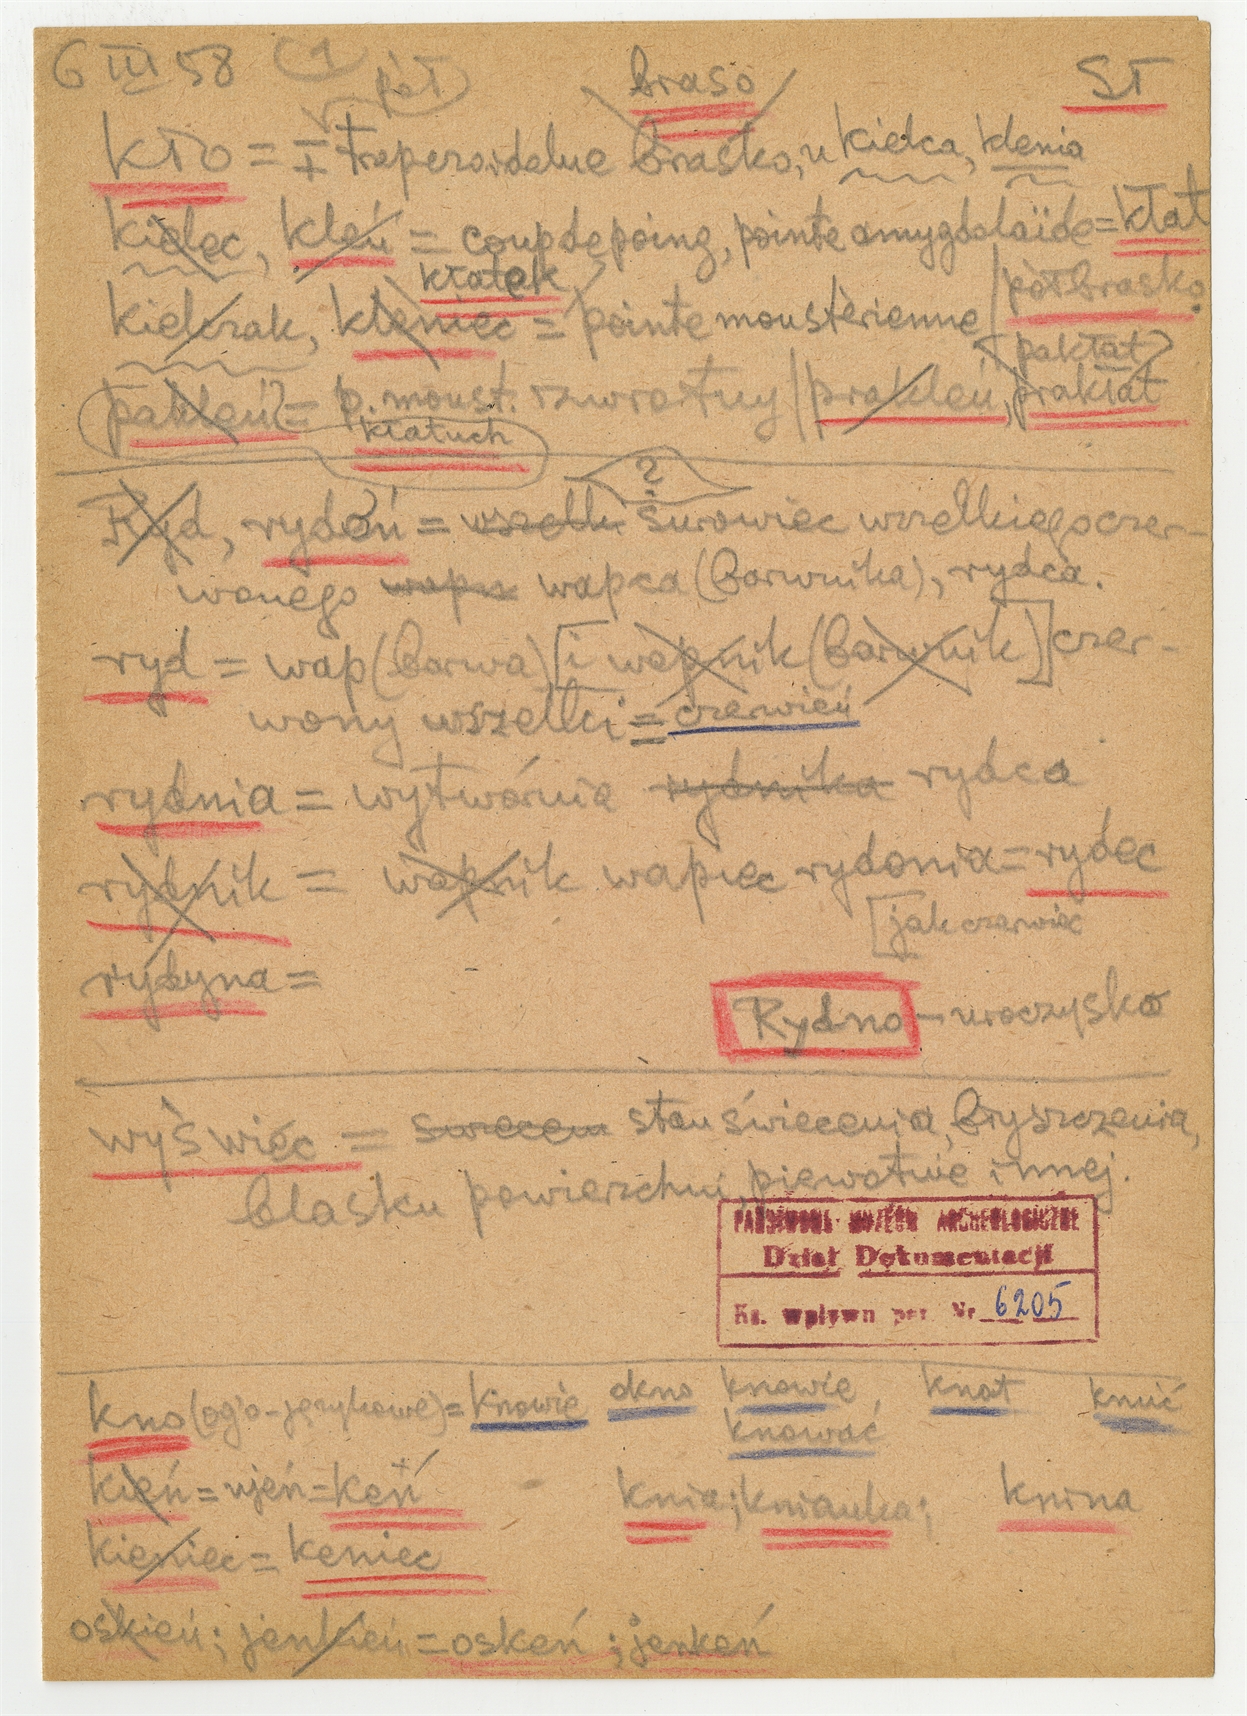 6 III 58 (1) braso ST
pół
kło = ± trapezoidalne braśko, u kielca, klenia
kielec, kleń = coup de poing, pointe amygdaloïde = kłat
kłatek
kielczak, kleniec = pointe moustérienne / półbraśko
pakłat
pakleń = p. moust. zwrotny // prakleń, prakłat
kłatuch
?
Ryd, rydeń = wszelki surowiec wszelkiego czer-
wonego wapca (barwnika), rydca.
ryd = wap (barwa) [i wapnik (barwnik)] czer-
wony wszelki = czerwień
rydnia = wytwórnia rydnika rydca
rydnik = wapnik wapiec rydonia = rydec
[jak czerwiec
rydzyna =
Rydno - uroczysko
wyświec = stan świecenia, błyszczenia,
blasku powierzchni, pierwotnie innej.
PAŃSTWOWE MUZEUM ARCHEOLOGICZNE
Dział Dokumentacji
Ks. wpływu poz. Nr 6205
kno (og'o-językowe) = knowie okno knowie knot knuć
knować
kień = ujeń = keń knia; kniauka; knina
kieniec = keniec
oskień; jenkień = oskeń; jenkeń